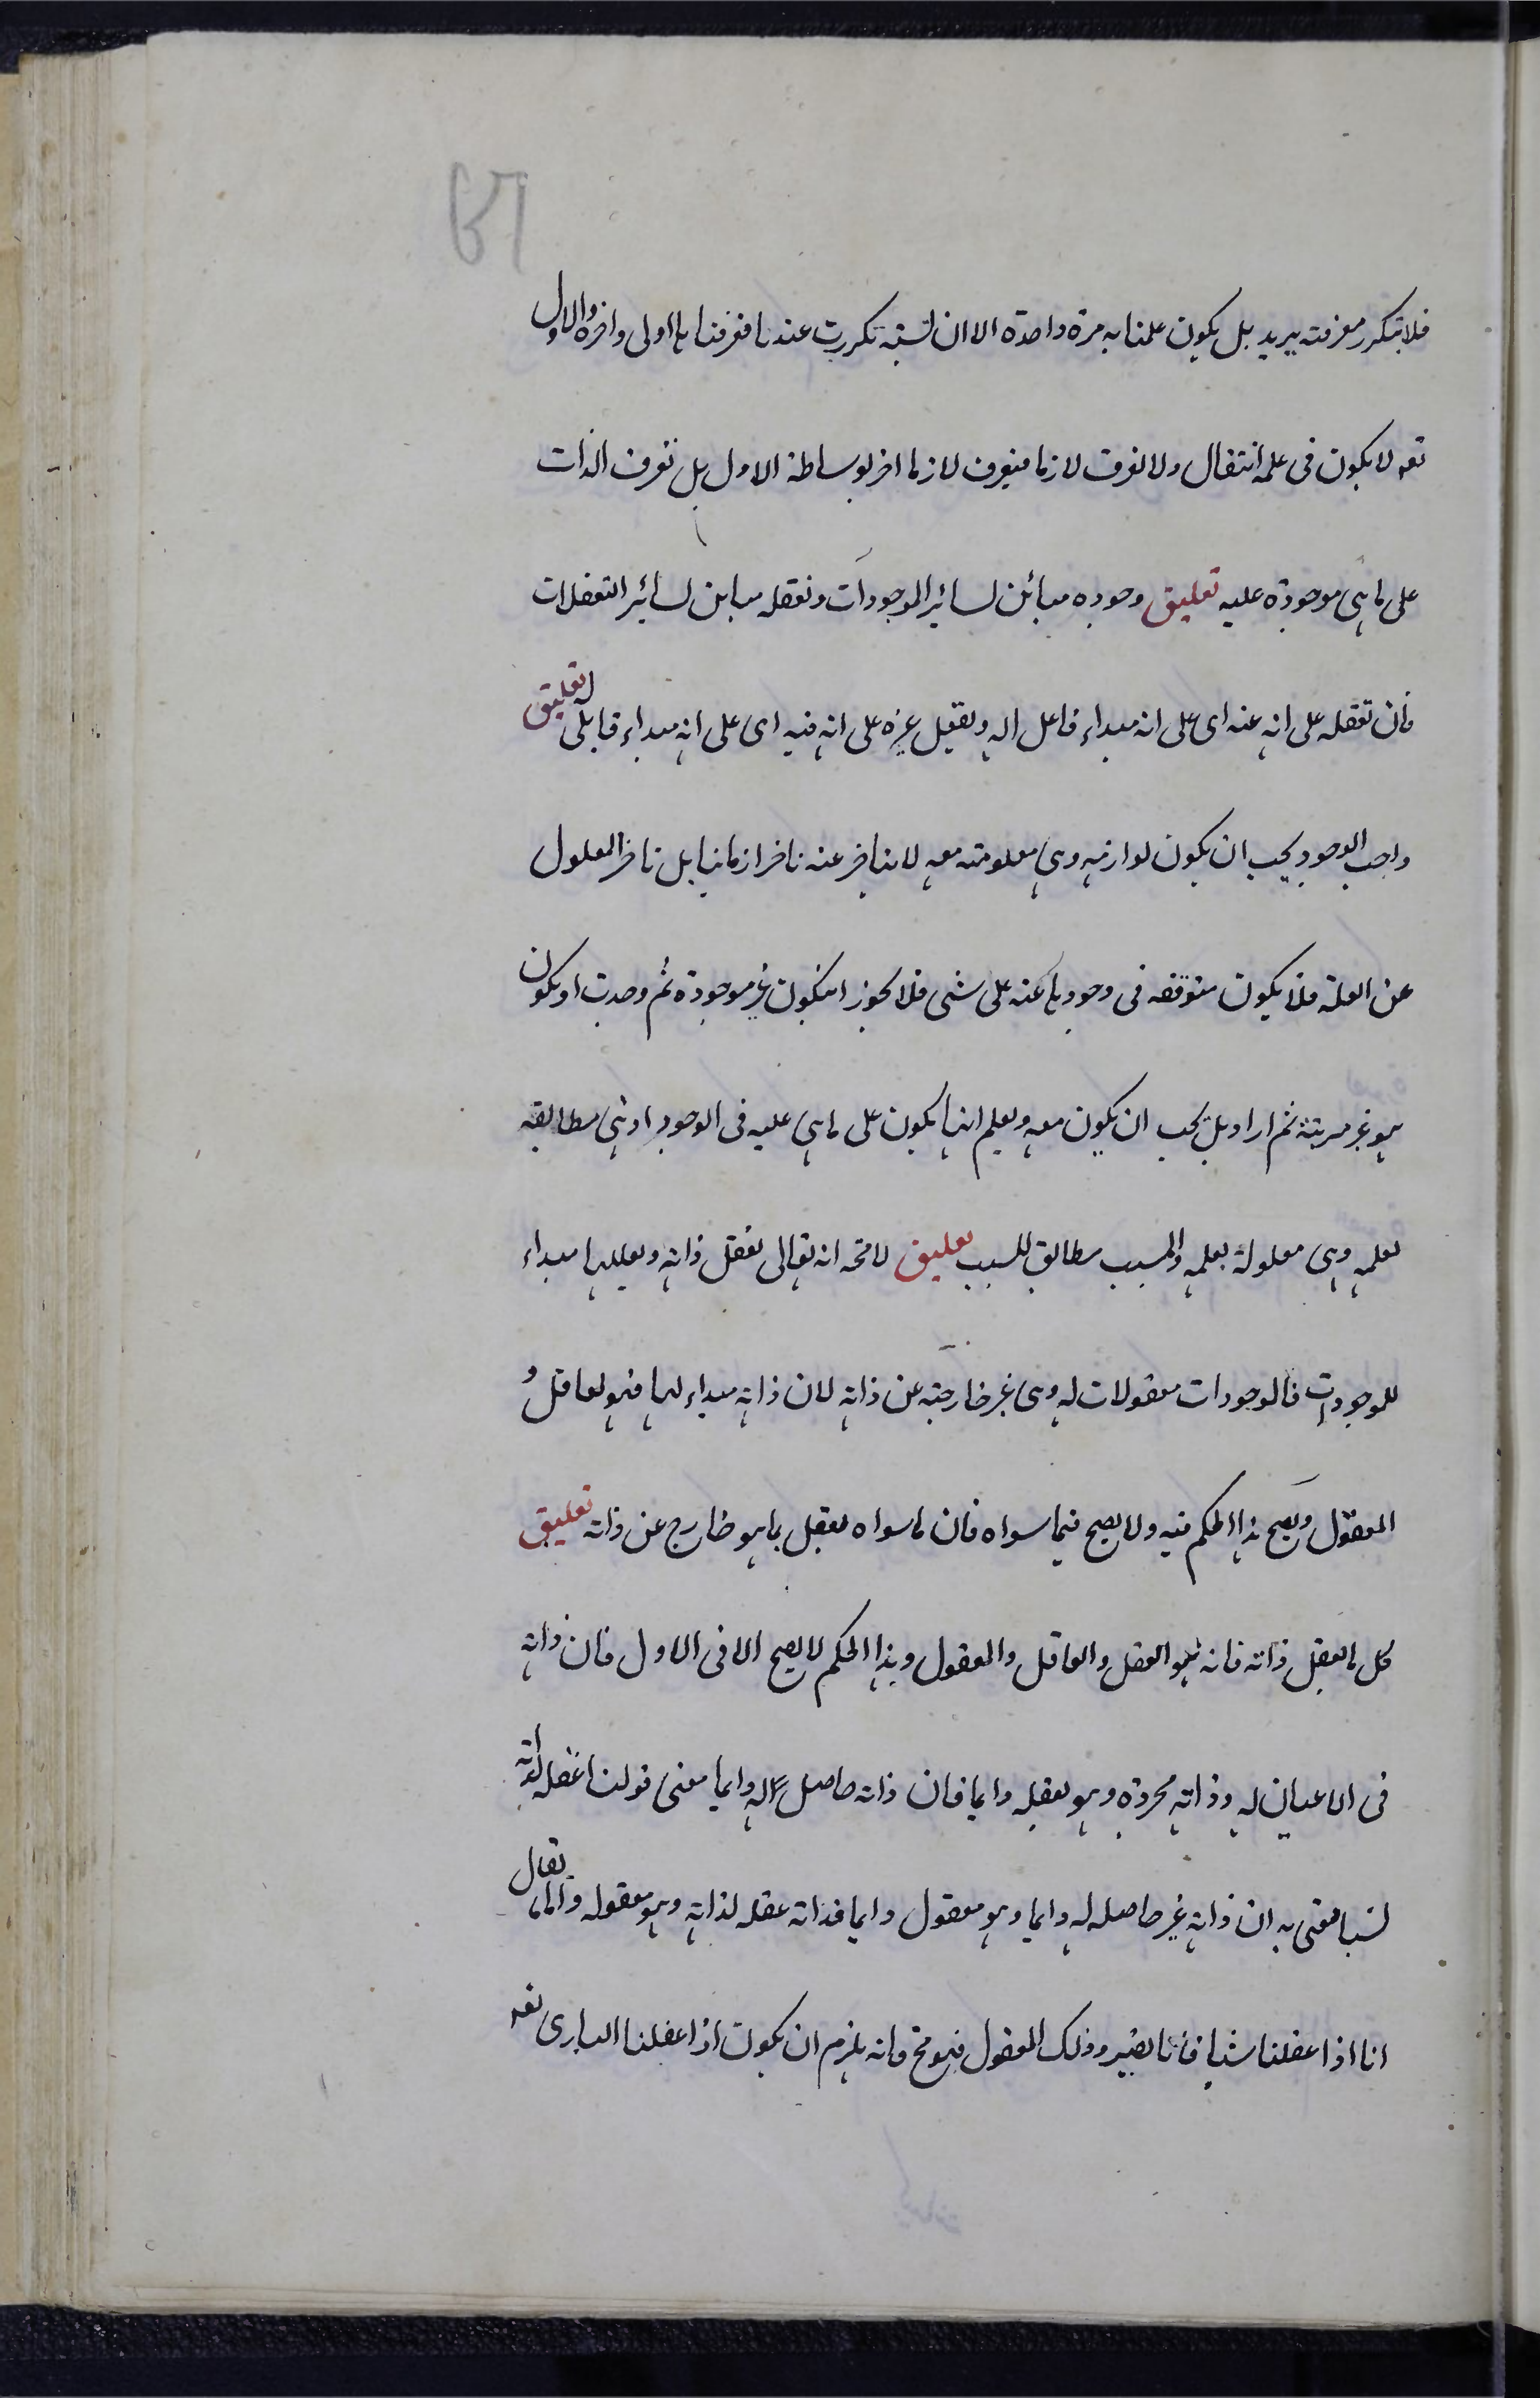 فلا يتكرر معرفته يريد بل يكون علمنا به مرة واحدة الا ان نسبته تكررت عندنا فعرفنا ها اولى واخرة والاول
تعه لا يكون في علمه انتقال ولا تعرف لازما فيعرف لازما اخر بوساطة الاول بل تعرف الذات
على ما هى موجودة عليه تعليق وجوده مبائن لسائر الموجودات وتعقله مباين لسائر التعقلات
فان تعقله على انه عنه اى على انه مبداء فاعل اله وتعقل غيره على انه فيه اى على انه مبداء قابلى تعليق
واجب الوجود يجب ان يكون لوازمه وهى معلومته معه لا يتاخر عنه تاخرا زمانيا بل تاخر المعلول
عن العلة فلا يكون متوقفه فى وجودها عنه على شى فلا يجوز ان يكون غير موجودة ثم وجدت او يكون
هو غير مريدة ثم اراد بل يجب ان يكون معه ويعلم انها يكون على ما هى عليه فى الوجود اذ هى مطابقه
لعلمه وهى معلولة بعلمه والمسبب مطابق للسبب تعليق لا محه انه تعالى يعقل ذاته ويعقلها مبداء
للموجودات فالموجودات معقولات له وهى غير خارجة عن ذاته لان ذاته مبداء لها فهو العاقل و
المعقول ويصح هذا الحكم فيه ولا يصح فيما سواه فان ما سواه يعقل بما هو خارج عن ذاته تعليق
كل ما يعقل ذاته فانه هو العقل والعاقل والمعقول وهذا الحكم لا يصح الا فى الاول فان ذاته
فى الاعيان له وذاته مجردة وهو يعقله دايما فان ذاته حاصل له دايما معنى قولنا عقله لذاته
لسنا معنى به ان ذاته غير حاصله له دايما وهو معقول دايما فذاته عقله لذاته وهو معقوله واما ما يقال
انا اذا عقلنا شيا فانا نصير وذلك المعقول فهو مح فانه يلزم ان يكون اذا عقلنا البارى تعه